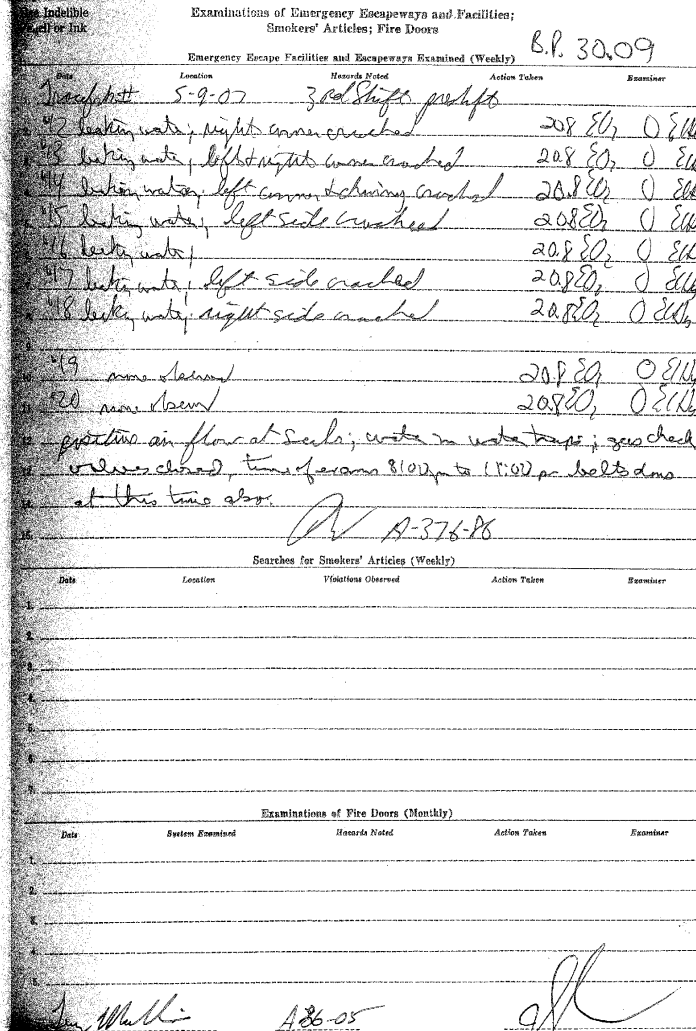 Use Indelible
Pencil or Ink
Examinations of Emergency Escapeways and Facilities;
Smokers' Articles; Fire Doors
B.P. 30.09
Emergency Escape Facilities and Escapeways Examined (Weekly)
Date Location Hazards Noted Action Taken Examiner
5-9-07 3rd Shift preshift
#12 leaking water, right corner cracked 20.8 %O2 0
#13 leaking water, left & right corner cracked 20.8 %O2 0
#14 leaking water, left corner & cracked 20.8 %O2 0
#15 leaking water, left side cracked 20.8 %O2 0
#16 leaky water, 20.8 %O2 0
#17 leaking water, left side cracked 20.8 %O2 0
#18 leaky water, right side cracked 20.8 %O2 0
9.
#19 none observed 20.8 %O2 0
#20 none observed 20.8 %O2 0
12. positive air flow at Seals; water in water traps; gas check
13. valves closed, time of exams to belts
14. at this time also.
15. A-376-86
Searches for Smokers' Articles (Weekly)
Date Location Violations Observed Action Taken Examiner
1.
2.
3.
4.
5.
6.
7.
Examinations of Fire Doors (Monthly)
Date System Examined Hazards Noted Action Taken Examiner
1.
2.
3.
4.
5.
A-86-05